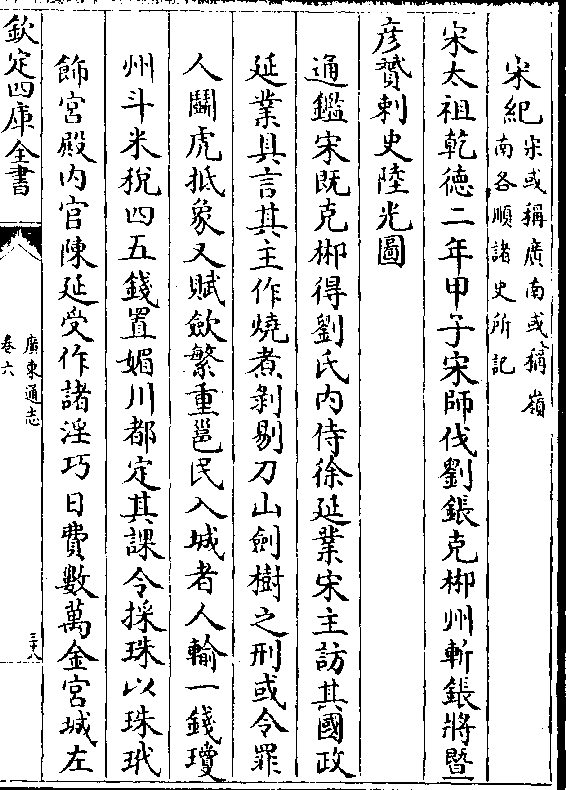 宋紀宋或稱廣南或稱嶺
南各順諸史所記
宋太祖乾徳二年甲子宋師伐劉鋹克郴州斬鋹將暨
彦贇刺史陸光圖
通鑑宋既克郴得劉氏内侍徐延業宋主訪其國政
延業具言其主作燒煮剥剔刀山劍樹之刑或令罪
人鬬虎抵象又賦斂繁重邕民入城者人輸一錢瓊
州斗米稅四五錢置媚川都定其課令採珠以珠玳
飾宮殿内官陳延受作諸淫巧日費數萬金宮城左
欽定四庫全書
廣東通志
卷六
三十八